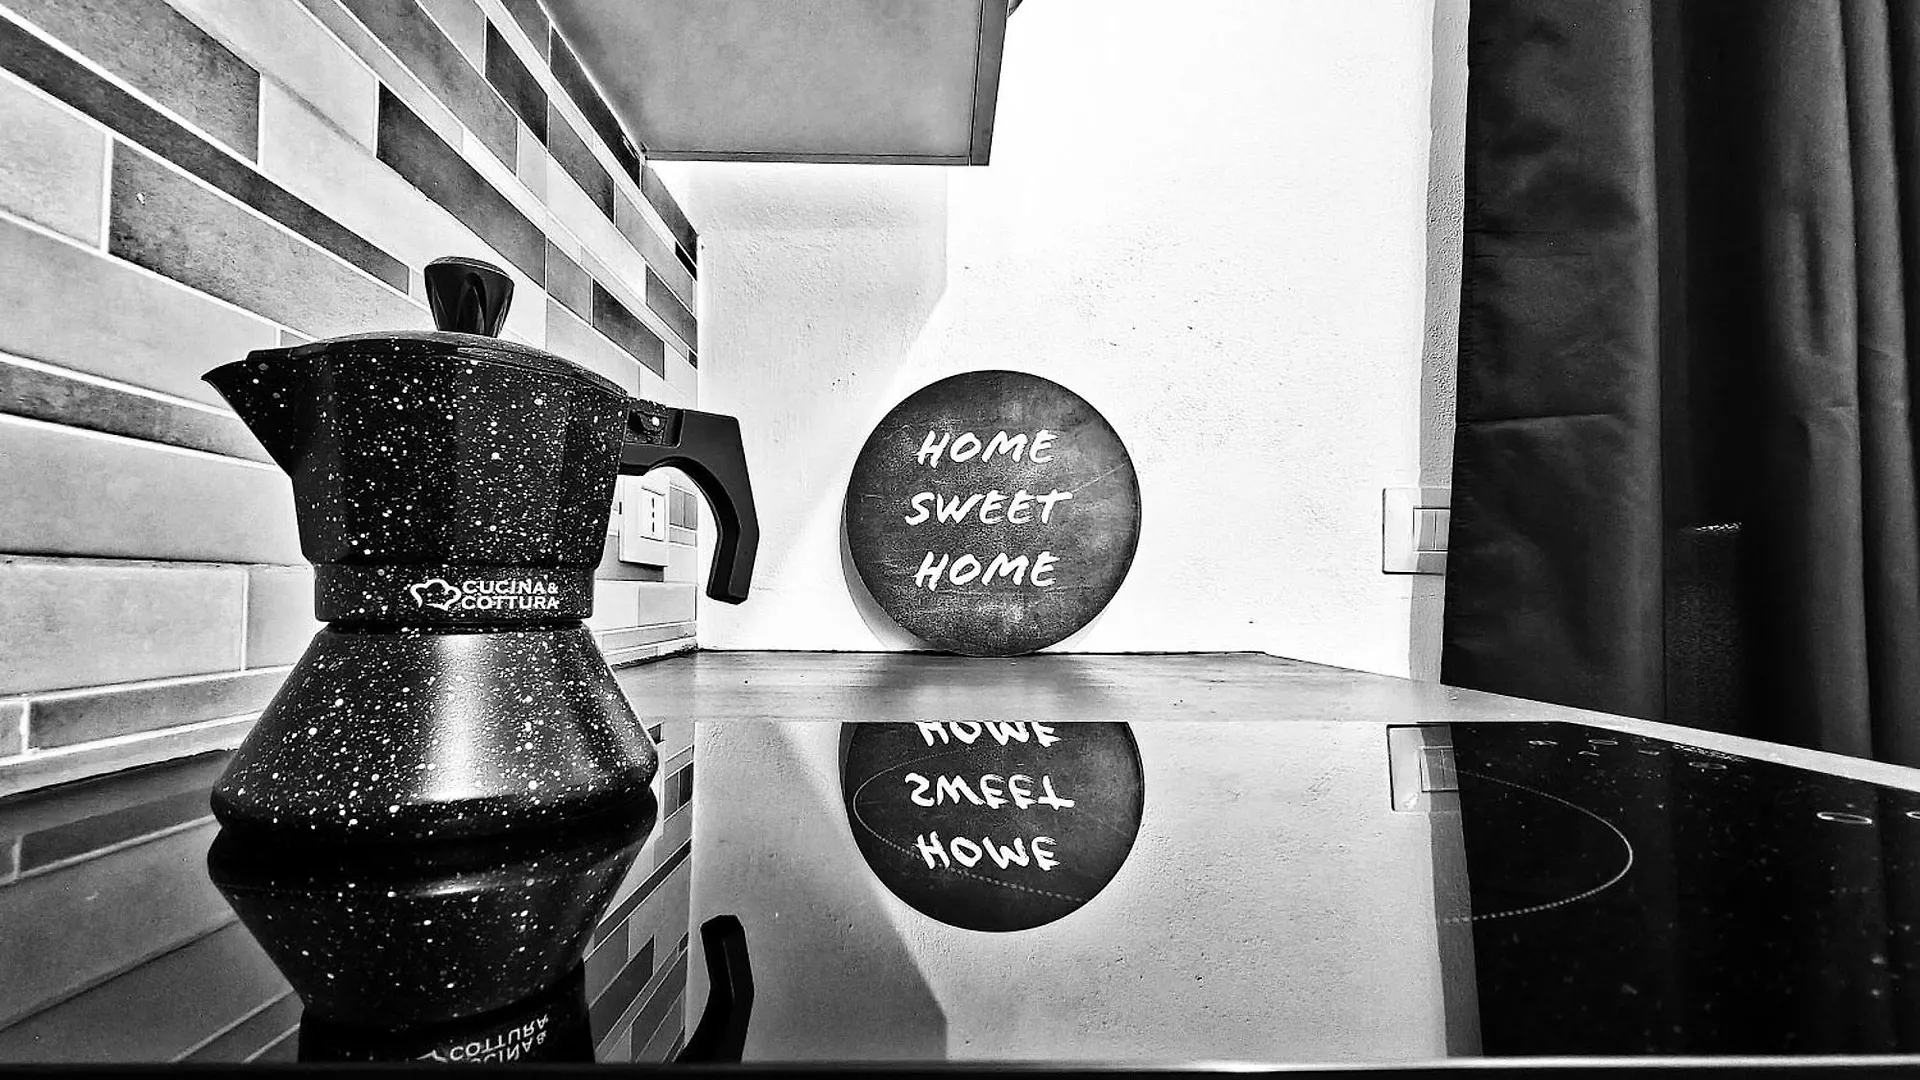 CUCINA&
COTTURA
HOME
SWEET
HOME